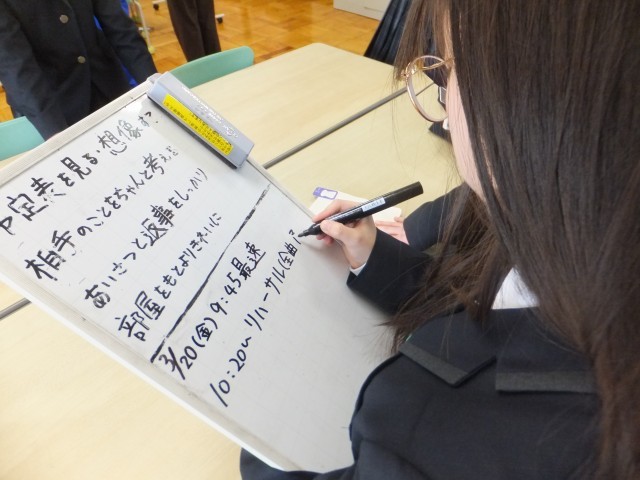 定表を見る・想像
相手のことをちゃんと考える
あいさつと返事をしっかり
部屋をもとよりきれいに
3/20(金) 9:45最速
10:20〜リハーサル(全曲